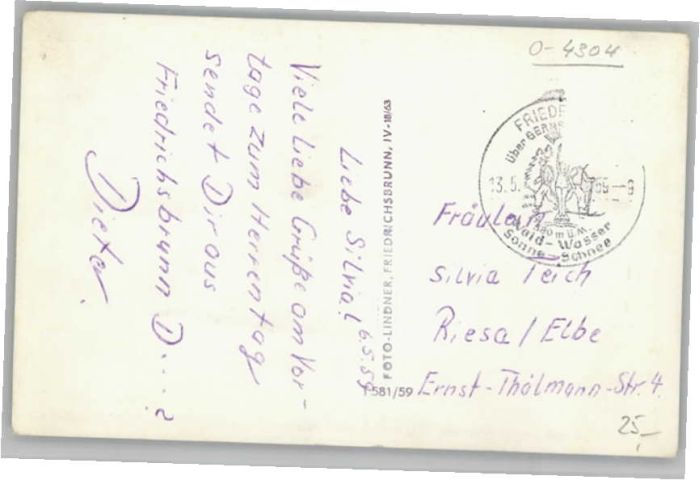 O-4304
Liebe Silvia! 6.5.69
Viele liebe Grüße am Vor-
tage zum Herrentag
sendet Dir aus
Friedrichsbrunn D....?
Dieter.
FOTO-LINDNER, FRIEDRICHSBRUNN, IV-18/63
T 581/59
FRIEDR
über GERN
13.5. 69--9
580 m ü.M.
Wald-Wasser
Sonne-Schnee
Fräulein
Silvia Teich
Riesa / Elbe
Ernst-Thälmann-Str. 4.
25,-